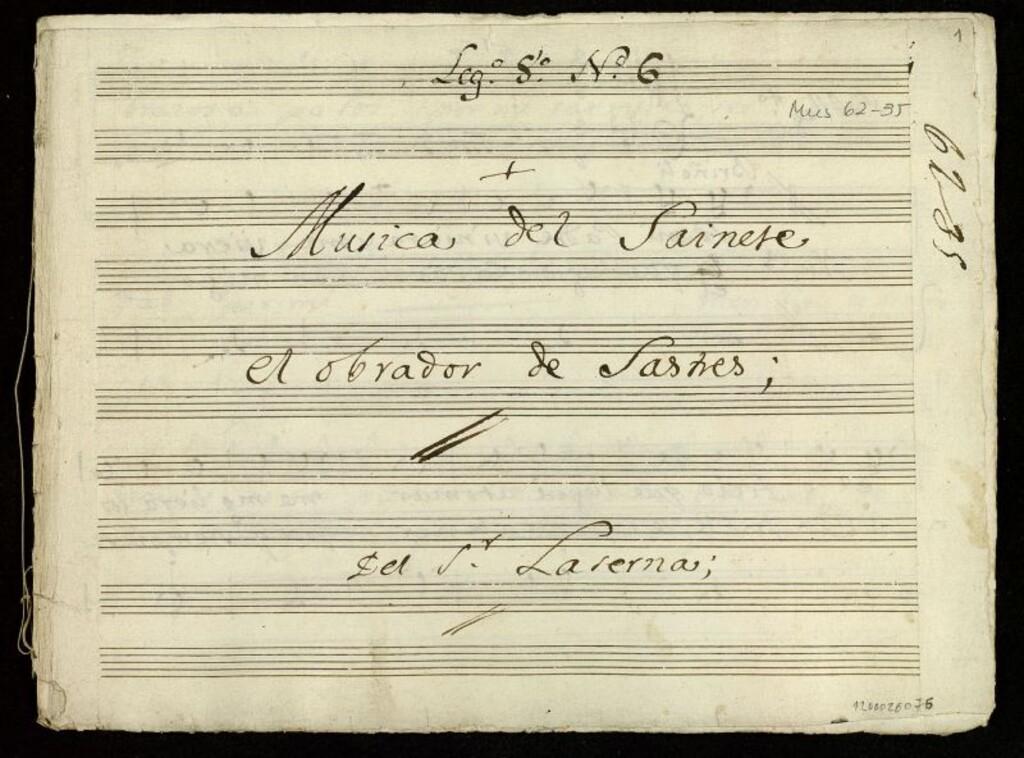 1
Leg.º 8.º N.º 6
Mus 62-35
62-35
+
Musica del Sainete
el obrador de Sastres;
Del S.r Laserna;
1200026076